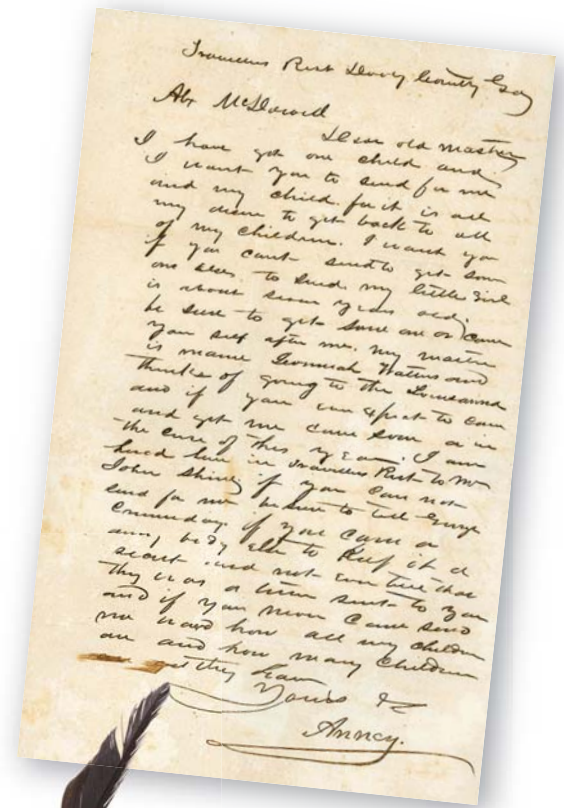 Travellers Rest Dooly County Ga
Abr McDowell
Dear old master
I have got one child and
I want you to send for me
and my child. for it is all
my desire to get back to all
of my children. I want you
if you cant send to get som
one else. to send. my little girl
is about seven years old.
be sure to get some one or come
your self after me. my master
is name Jeremiah Watters and
thinks of going to the Lousanna
and if you can expect to come
and get me come soon or in
the corse of this year. I am
hired here in Travellers Rest to Mr
John Shine, if you can not
send for me be sure to tell George
if you come or
any body else to keep it a
secret and not even tell that
they was a letter sent to you
and if you never come send
me word how all my children
are and how many children
they have
Yours &c
Anney.